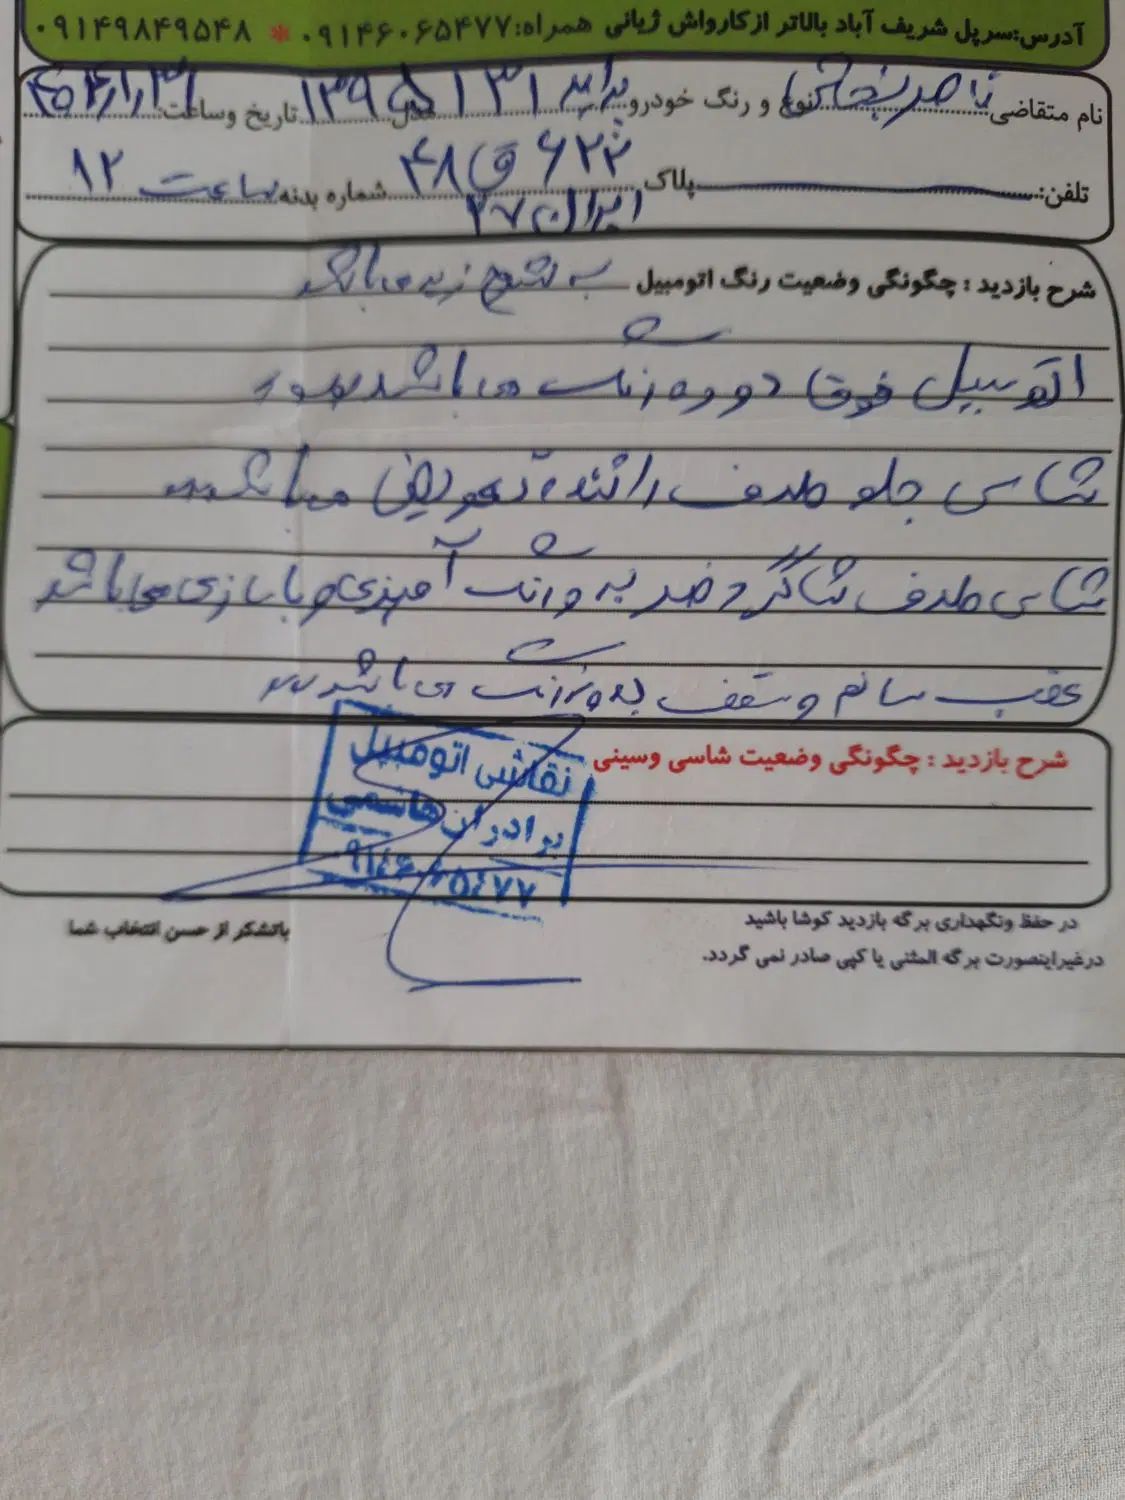 آدرس:سرپل شریف آباد بالاتر ازکارواش ژیانی همراه:۰۹۱۴۶۰۶۵۴۷۷ * ۰۹۱۴۹۸۴۹۵۴۸
نام متقاضی ناصر نوع و رنگ خودرو پراید ۱۳۱ مدل ۱۳۹۵ تاریخ وساعت:
تلفن: پلاک ۶۲۲ ق ۴۸ شماره بدنه ساعت ۱۲
ایران ۲۷
شرح بازدید : چگونگی وضعیت رنگ اتومبیل به شرح زیر می باشد
اتومبیل فوق دور رنگ می باشد
شاسی جلو طرف راننده تعویض میباشد
شاسی طرف شاگرد ضربه و رنگ آمیزی و بازسازی می باشد
عقب سالم و سقف بدون رنگ می باشد
شرح بازدید : چگونگی وضعیت شاسی وسینی
نقاشی اتومبیل
برادران هاشمی
۰۹۱۴۶۰۶۵۴۷۷
در حفظ ونگهداری برگه بازدید کوشا باشید
باتشکر از حسن انتخاب شما
درغیراینصورت برگه المثنی یا کپی صادر نمی گردد.